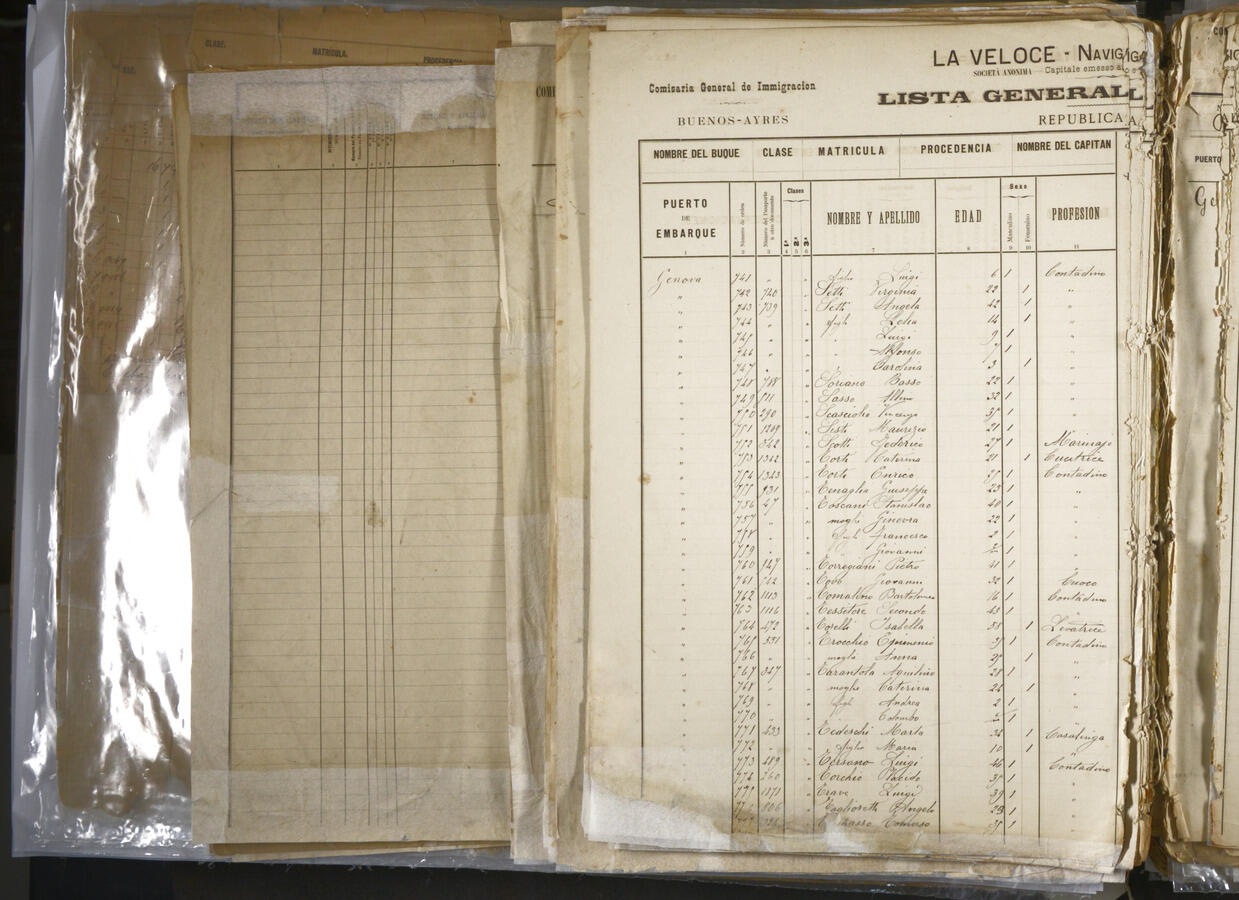 CLASE. MATRICULA. PROCEDENCIA
COM
LA VELOCE - NAVIGA
SOCIETÀ ANONIMA — Capitale emesso e
Comisaria General de Immigracion
LISTA GENERAL
BUENOS-AYRES
REPUBLICA A
NOMBRE DEL BUQUE CLASE MATRICULA PROCEDENCIA NOMBRE DEL CAPITAN
PUERTO DE EMBARQUE Número de orden Número del Pasaporte ú otro documento Clases 1ª 2ª 3ª NOMBRE Y APELLIDO EDAD Sexo Masculino Femenino PROFESION
1 2 3 4 5 6 7 8 9 10 11
Genova 741 " " figlio Luigi 6 1 Contadino
" 742 740 " Setti Virginia 22 1 "
" 743 739 " Setti Angela 42 1 "
" 744 " " figli Lelia 14 1 "
" 745 " " " Luigi 9 1 "
" 746 " " " Alfonso 7 1 "
" 747 " " " Carolina 3 1 "
" 748 788 " Soriano Basso 22 1 "
" 749 811 " Sasso 32 1 "
" 750 290 " Vincenzo 35 1 "
" 751 1209 " Sisti Maurizio 21 1 "
" 752 842 " Scotti Federico 27 1 Marinajo
" 753 1342 " Corti Caterina 21 1 Cucitrice
" 754 1343 " Corti Enrico 25 1 Contadino
" 755 931 " Tenaglia Giuseppe 23 1 "
" 756 47 " Toscani Stanislao 40 1 "
" 757 " " moglie Ginevra 22 1 "
" 758 " " figli Francesco 2 1 "
" 759 " " " Giovanni 1 "
" 760 947 " Torregiani Pietro 41 1 "
" 761 712 " Giovanni 32 1 Cuoco
" 762 1113 " Tomatino Bartolomeo 16 1 Contadino
" 763 1116 " Tessitore Secondo 43 1 "
" 764 472 " Torelli Isabella 38 1 Levatrice
" 765 531 " Trocchio Epimenio 35 1 Contadino
" 766 " " moglie Anna 25 1 "
" 767 347 " Tarantola Aquilino 28 1 "
" 768 " " moglie Caterina 24 1 "
" 769 " " figli Andrea 2 1 "
" 770 " " " Colombo 1 "
" 771 433 " Tedeschi Marta 36 1 Casalinga
" 772 " " figlia Maria 10 1 "
" 773 489 " Tersano Luigi 46 1 Contadino
" 774 260 " Torchio Placido 35 1 "
" 775 1871 " Trave Luigi 39 1 "
" 776 806 " Taglioretti Angelo 29 1 "
" Tomaso 35 1 "
PUERTO
Ge